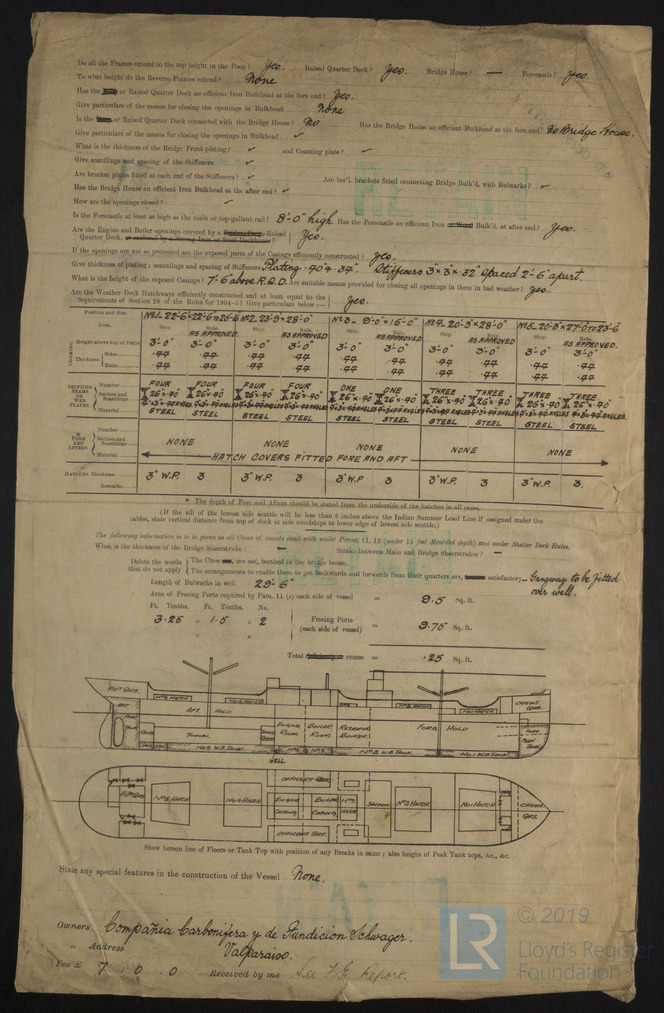 Do all the Frames extend to the top height in the Poop? Yes. Raised Quarter Deck? Yes. Bridge House? — Forecastle? Yes.
To what height do the Reverse Frames extend? None
Has the or Raised Quarter Deck an efficient Iron Bulkhead at the fore end? Yes.
Give particulars of the means for closing the openings in Bulkhead None
Is the Poop, or Raised Quarter Deck connected with the Bridge House? No Has the Bridge House an efficient Bulkhead at the fore end? No Bridge House.
Give particulars of the means for closing the openings in Bulkhead ✓
What is the thickness of the Bridge Front plating? ✓ and Coaming plate? ✓
Give scantlings and spacing of the Stiffeners ✓
Are bracket plates fitted at each end of the Stiffeners? ✓ Are hor'l. brackets fitted connecting Bridge Bulk'd. with Bulwarks? ✓
Has the Bridge House an efficient Iron Bulkhead at the after end? ✓
How are the openings closed? ✓
Is the Forecastle at least as high as the main or top-gallant rail? 8'-0" high Has the Forecastle an efficient Iron or Wood Bulk'd. at after end? Yes.
Are the Engine and Boiler openings covered by a Bridge, Poop, Raised
Quarter Deck, or enclosed by a Strong Iron or Steel Deckhouse? Yes.
If the openings are not so protected are the exposed parts of the Casings efficiently constructed? yes.
Give thickness of plating; scantlings and spacing of Stiffeners Plating .40 & .34" Stiffeners 3"x3"x.32" spaced 2'-6" apart.
What is the height of the exposed Casings? 7'-6" above R.Q.D. Are suitable means provided for closing all openings in them in bad weather? Yes.
Are the Weather Deck Hatchways efficiently constructed and at least equal to the
requirements of Section 28 of the Rules for 1904-5? Give particulars below:— Yes.
Position and Size. No1. 22-6x22-6 to 20-6 No2. 23-9x28-0" No3- 9-0"x16-0" No4- 20-3"x28-0" No5- 20-3"x27-0 to 23-6
Item. Ship. Rule. Ship. Rule. Ship. Rule. Ship. Rule. Ship. Rule.
AS APPROVED AS APPROVED AS APPROVED AS APPROVED AS APPROVED
COAMING Height above top of DECK 3'-0" 3'-0" 3'-0" 3'-0" 3'-0" 3'-0" 3'-0" 3'-0" 3'-0" 3'-0"
Thickness Sides .44 .44 .44 .44 .44 .44 .44 .44 .44 .44
Ends .44 .44 .44 .44 .44 .44 .44 .44 .44 .44
SHIFTING BEAMS OR WEB PLATES Number FOUR FOUR FOUR FOUR ONE ONE THREE THREE THREE THREE
Section and Scantlings 26"x.40" 26"x.40" 26"x.40" 26"x.40" 26"x.40" 26"x.40" 26"x.40" 26"x.40" 26"x.40" 26"x.40"
Material STEEL STEEL STEEL STEEL STEEL STEEL STEEL STEEL STEEL STEEL
* FORE AND AFTERS. Number
Section and Scantlings NONE NONE NONE NONE NONE
Material HATCH COVERS FITTED FORE AND AFT
HATCHES Thickness 3" W.P. 3 3" W.P. 3 3" W.P 3 3" W.P. 3 3" W.P. 3.
Remarks
* The depth of Fore and Afters should be stated from the underside of the hatches in all cases.
(If the sill of the lowest side scuttle will be less than 6 inches above the Indian Summer Load Line if assigned under the
tables, state vertical distance from top of deck at side amidships to lower edge of lowest side scuttle.)
The following information is to be given in all Cases of vessels dealt with under Paras. 11, 12 (under 15 feet Moulded depth) and under Shelter Deck Rules.
What is the thickness of the Bridge Sheerstrake? — Strake between Main and Bridge Sheerstrakes? —
Delete the words that do not apply
The Crew are, are not, berthed in the bridge house.
The arrangements to enable them to get backwards and forwards from their quarters are, satisfactory— Gangway to be fitted
over well.
Length of Bulwarks in well 29'-6"
Area of Freeing Ports required by Para. 11 (e) each side of vessel = 9.5 Sq. ft.
Ft. Tenths. Ft. Tenths. No.
3.25 x 1.5 x 2 Freeing Ports (each side of vessel) = 9.75 Sq. ft.
x x
Total excess = .25 Sq. ft.
No5 HATCH No4 HATCH No2 HATCH No1 HATCH CREWS QRS.
AFT HOLD ENGINE ROOM BOILER ROOM RESERVE BUNKER FORE HOLD
TUNNEL FORE PEAK TANK
No5 W.B. TANK No3 W.B. TANK No1 W.B. TANK
WELL
OFFICERS QRS.
No5 HATCH No4 HATCH ENGINE CASING BOILER CASING No3 HATCH SALOON No2 HATCH No1 HATCH CREWS QRS.
OFFICERS QRS.
Show hereon line of Floors or Tank Top with position of any Breaks in same; also height of Peak Tank tops, &c., &c.
State any special features in the construction of the Vessel None.
Owners Compañia Carbonifera y de Fundicion Schwager.
" Address Valparaiso.
Fee £ 7 : 0 : 0 Received by me See F.E. Report.
LR © 2019
Lloyd's Register
Foundation